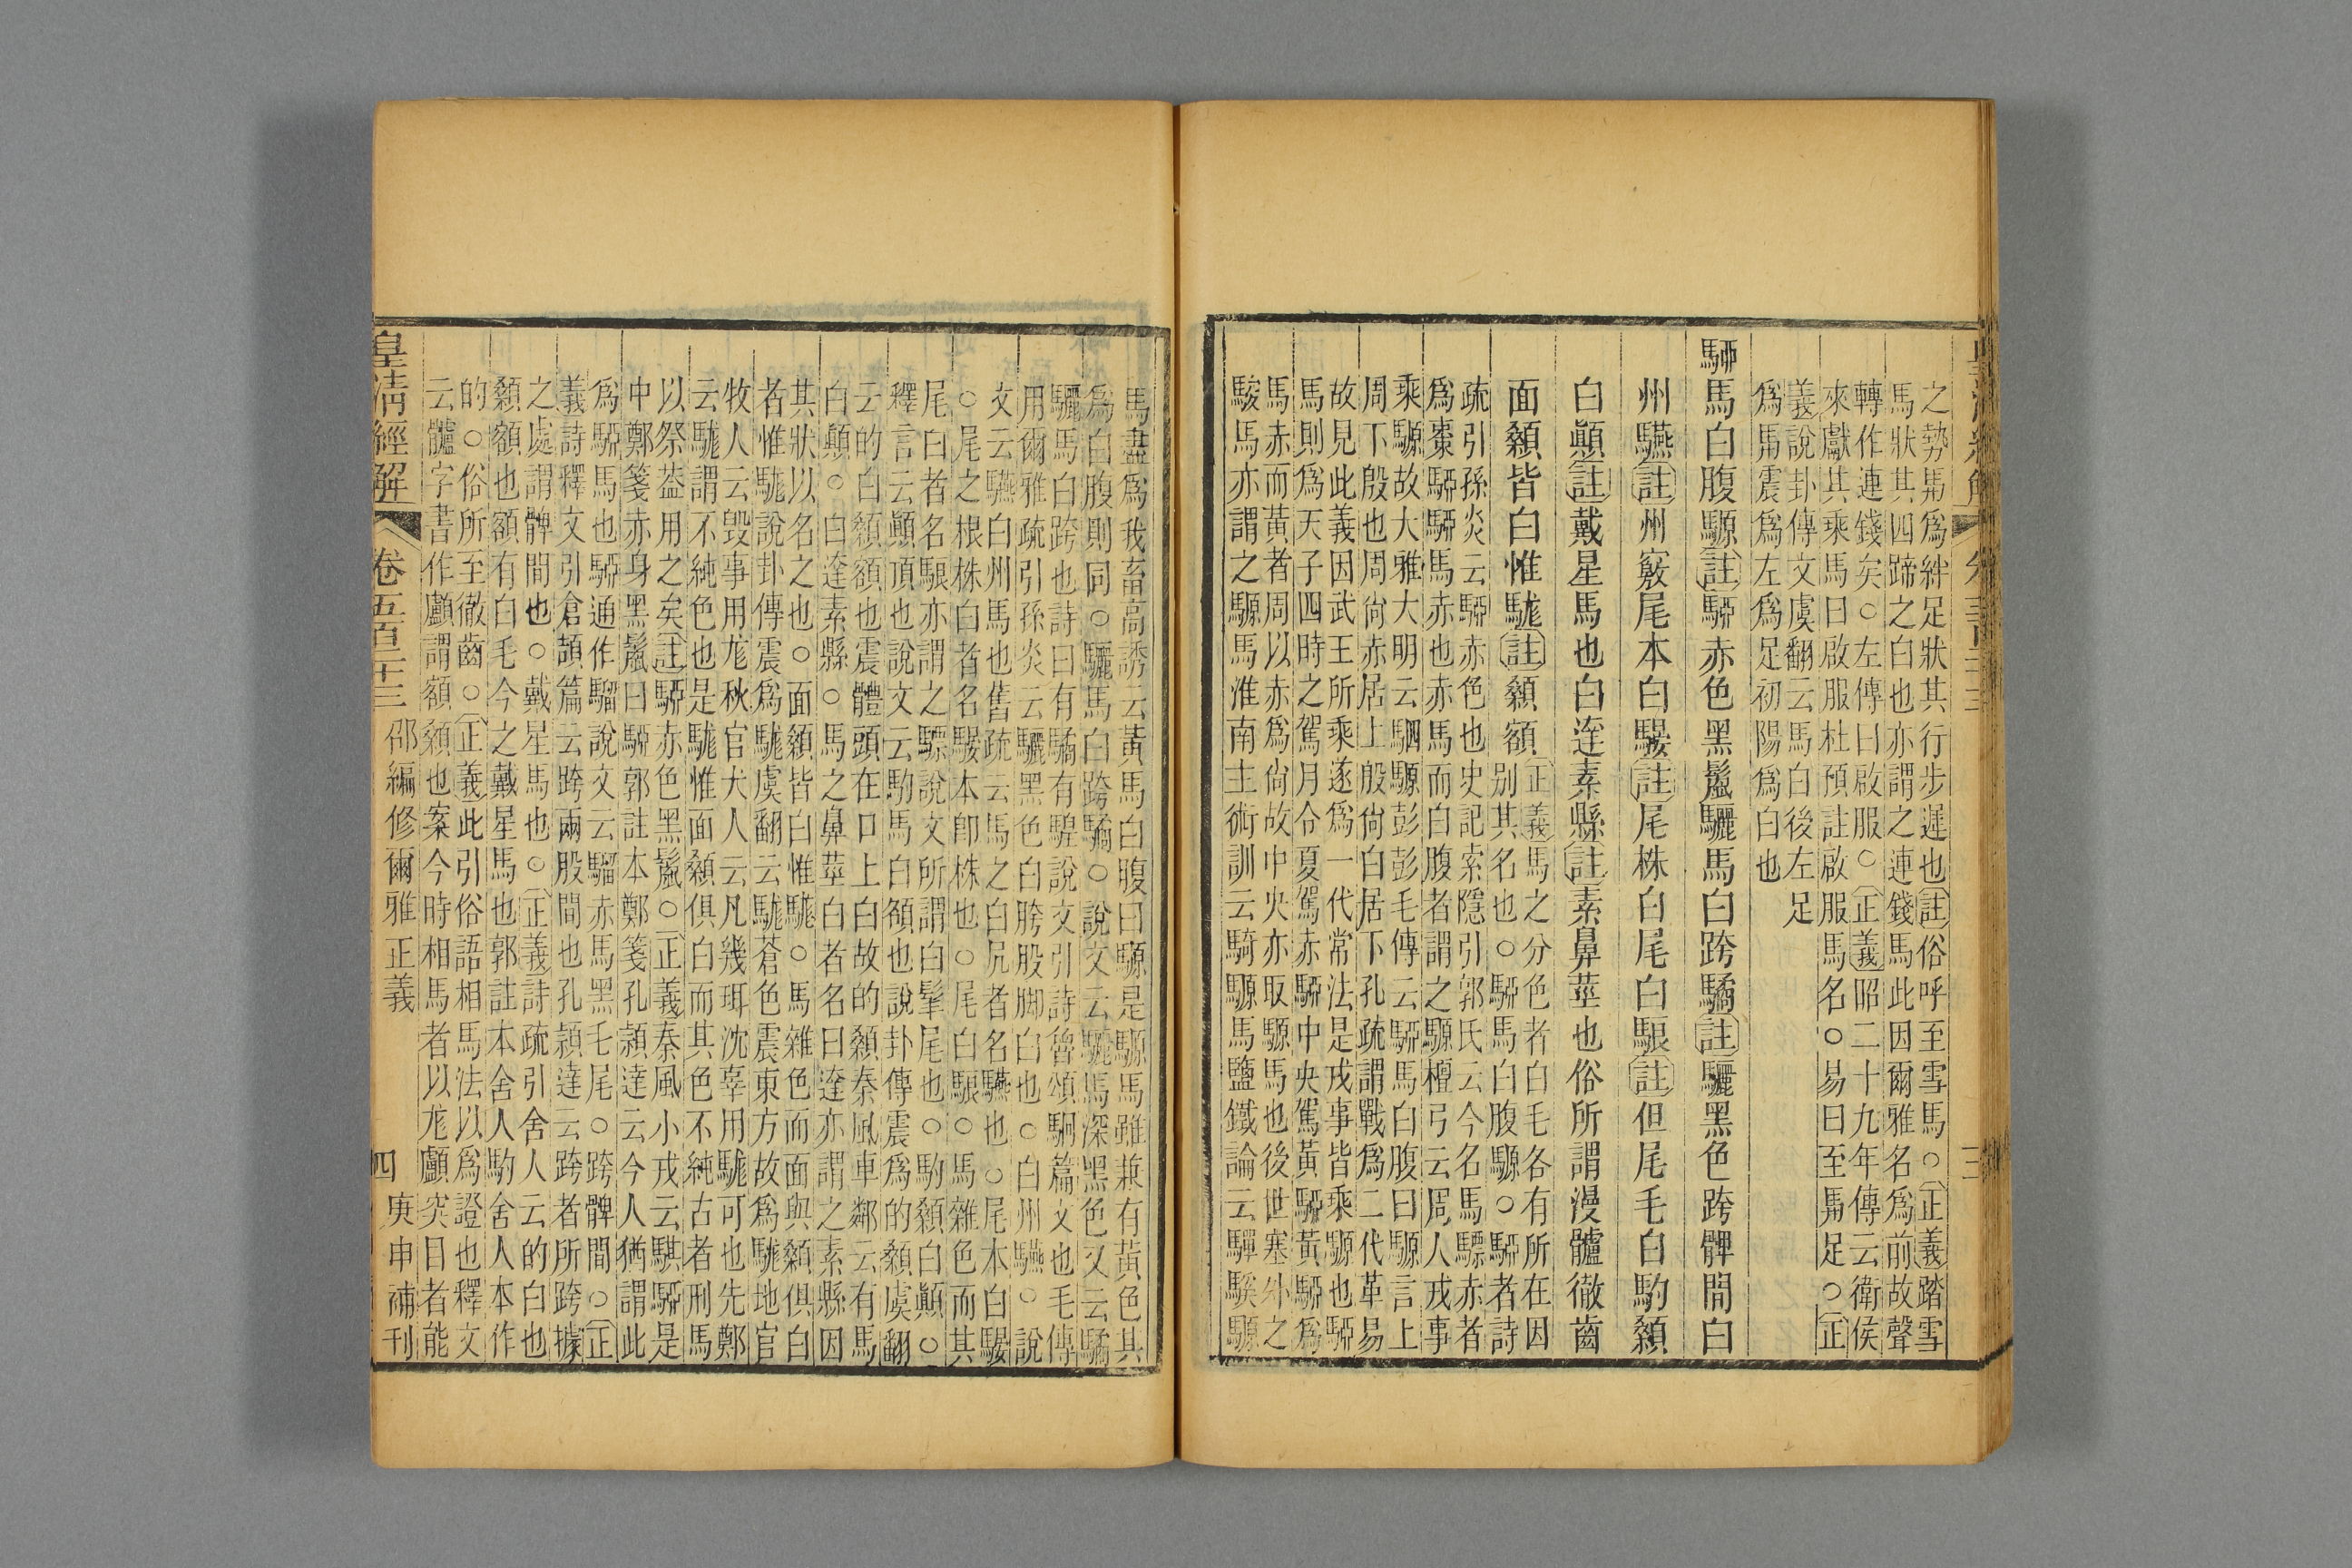 之勢馬爲絆足狀其行步遲也註俗呼至雪馬○正義踏雪
馬狀其四蹄之白也亦謂之連錢馬此因爾雅名爲前故聲
轉作連錢矣○左傳曰啟服○正義昭二十九年傳云衛侯
來獻其乘馬曰啟服杜預註啟服馬名○易曰至馵足○正
義說卦傳文虞翻云馬白後左足
爲馵震爲左爲足初陽爲白也
騂馬白腹騵註騂赤色黑鬣驪馬白跨驈註驪黑色跨髀間白
州驠註州竅尾本白騴註尾株白尾白駺註但尾毛白馰顙
白顚註戴星馬也白達素縣註素鼻莖也俗所謂漫髗徹齒
面顙皆白惟駹註顙額正義馬之分色者白毛各有所在因
別其名也○騂馬白腹騵○騂者詩
疏引孫炎云騂赤色也史記索隱引郭氏云今名馬驃赤者
爲棗騂騂馬赤也赤馬而白腹者謂之騵檀弓云周人戎事
乘騵故大雅大明云駟騵彭彭毛傳云騂馬白腹曰騵言上
周下殷也周尙赤居上殷尙白居下孔疏謂戰爲二代革易
故見此義因武王所乘遂爲一代常法是戎事皆乘騵也騂
馬則爲天子四時之駕月令夏駕赤騂中央駕黃騂黃騂爲
馬赤而黃者周以赤爲尙故中央亦取騵馬也後世塞外之
駿馬亦謂之騵馬淮南主術訓云騎騵馬鹽鐵論云驒騱騵
馬盡爲我畜高誘云黃馬白腹曰騵是騵馬雖兼有黃色其
爲白腹則同○驪馬白跨驈○說文云驪馬深黑色又云驈
驪馬白跨也詩曰有驈有騜說文引詩魯頌駉篇文也毛傳
用爾雅疏引孫炎云驪黑色白胯股脚白也○白州驠○說
文云驠白州馬也舊疏云馬之白尻者名驠也○尾本白騴
○尾之根株白者名騴本卽株也○尾白駺○馬雜色而其
尾白者名駺亦謂之驃說文所謂白髦尾也○馰顙白顚○
釋言云顚頂也說文云馰馬白額也說卦傳震爲的顙虞翻
云的白顙額也震體頭在口上白故的顙秦風車鄰云有馬
白顚○白達素縣○馬之鼻莖白者名曰達亦謂之素縣因
其狀以名之也○面顙皆白惟駹○馬雜色而面與顙俱白
者惟駹說卦傳震爲駹虞翻云駹蒼色震東方故爲駹地官
牧人云毀事用尨秋官犬人云凡幾珥沈辜用駹可也先鄭
云駹謂不純色也是駹惟面顙俱白而其色不純古者刑馬
以祭葢用之矣註騂赤色黑鬣○正義秦風小戎云騏騂是
中鄭箋赤身黑鬣曰騂郭註本鄭箋孔頴達云今人猶謂此
爲騂馬也騂通作騮說文云騮赤馬黑毛尾○跨髀間○正
義詩釋文引倉頡篇云跨兩股間也孔頴達云跨者所跨據
之處謂髀間也○戴星馬也○正義詩疏引舍人云的白也
顙額也額有白毛今之戴星馬也郭註本舍人馰舍人本作
的○俗所至徹齒○正義此引俗語相馬法以爲證也釋文
云髗字書作顱謂額顙也案今時相馬者以尨顱突目者能
皇淸經解
卷五百二十三
邵編修爾雅正義
四
庚申補刊